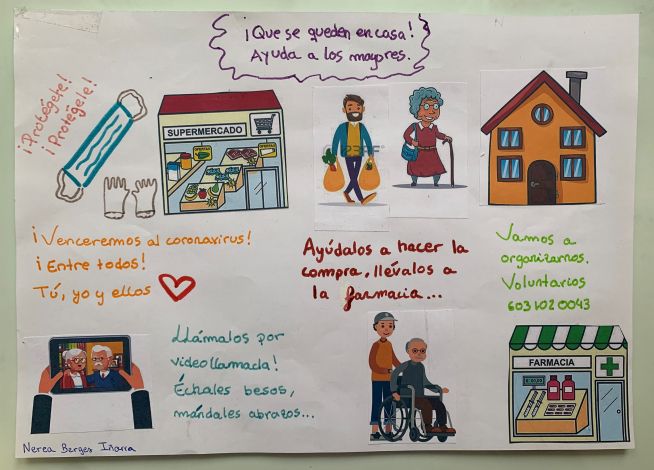 ¡Que se queden en casa!
Ayuda a los mayores.
¡Protégete!
¡Protégele!
SUPERMERCADO
OFERTAS
¡Venceremos al coronavirus!
¡Entre todos!
Tú, yo y ellos
Ayúdalos a hacer la
compra, llévalos a
la farmacia...
Vamos a
organizarnos.
Voluntarios
6031020043
Llámalos por
videollamada!
Échales besos,
mándales abrazos...
FARMACIA
Nerea Berges Inarra